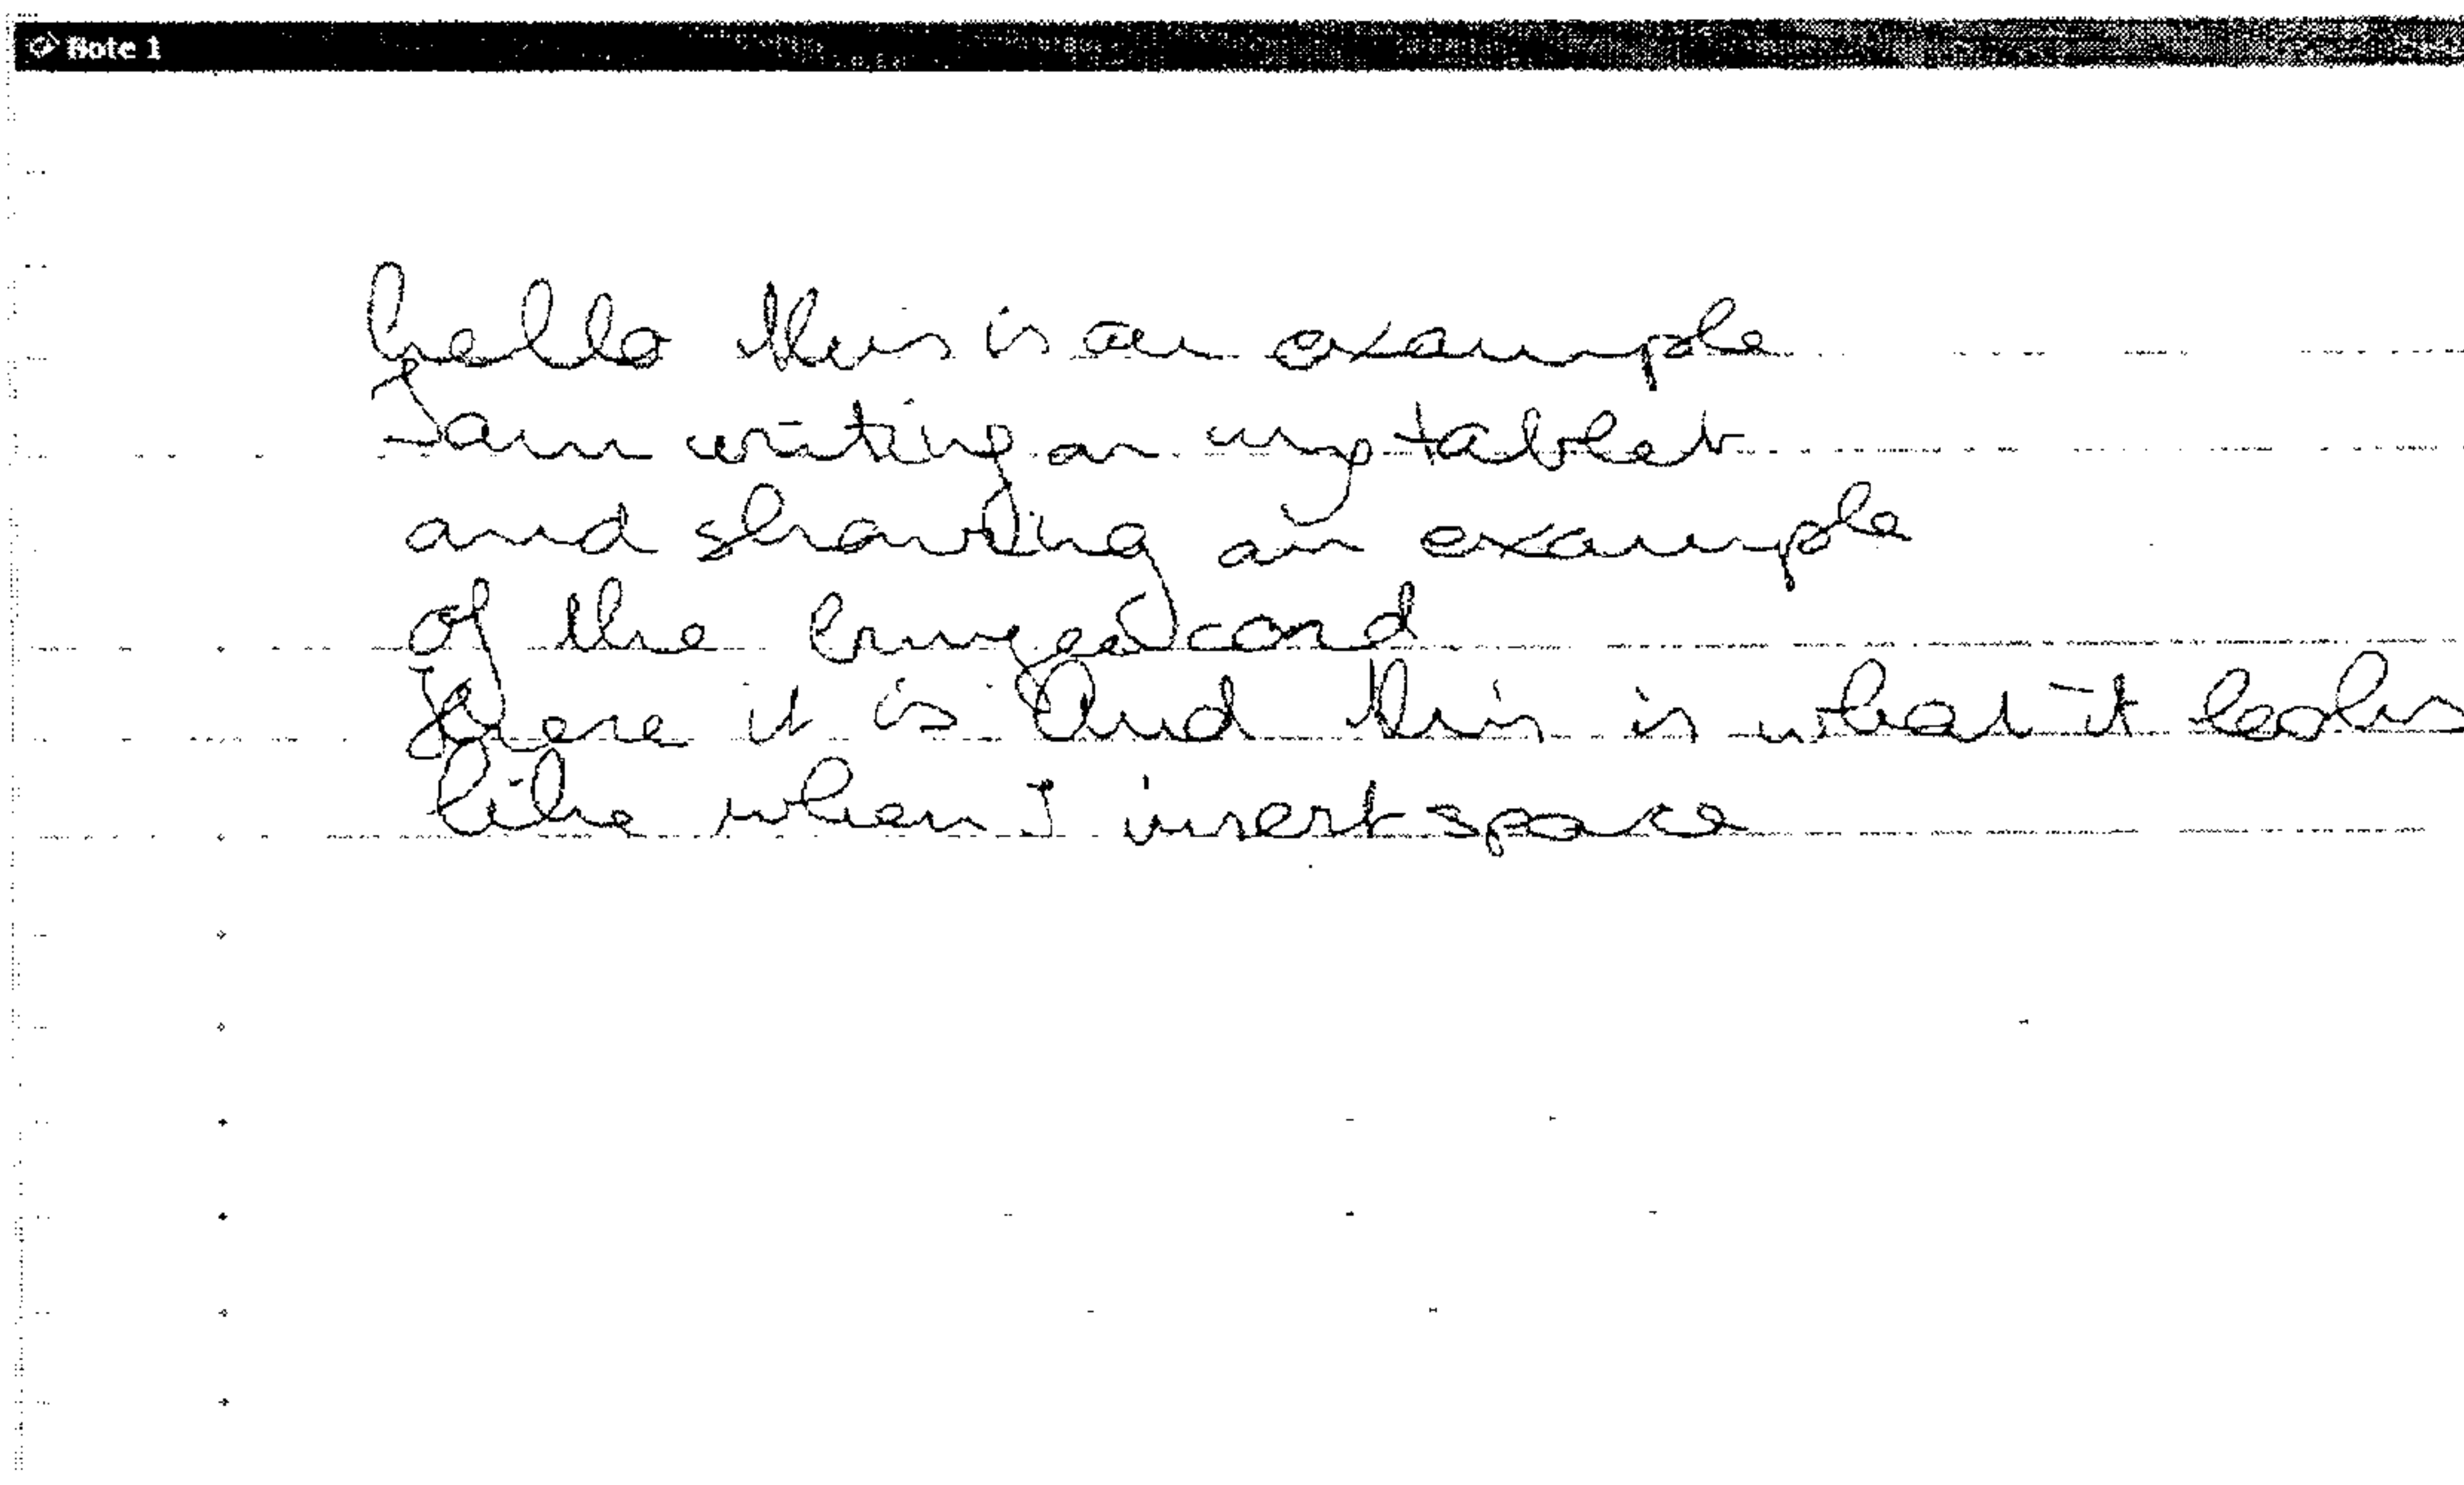 Note 1
hello this is an example
I am writing on my tablet
and showing an example
of the card
Here it is And this is what it looks
like when I insert space